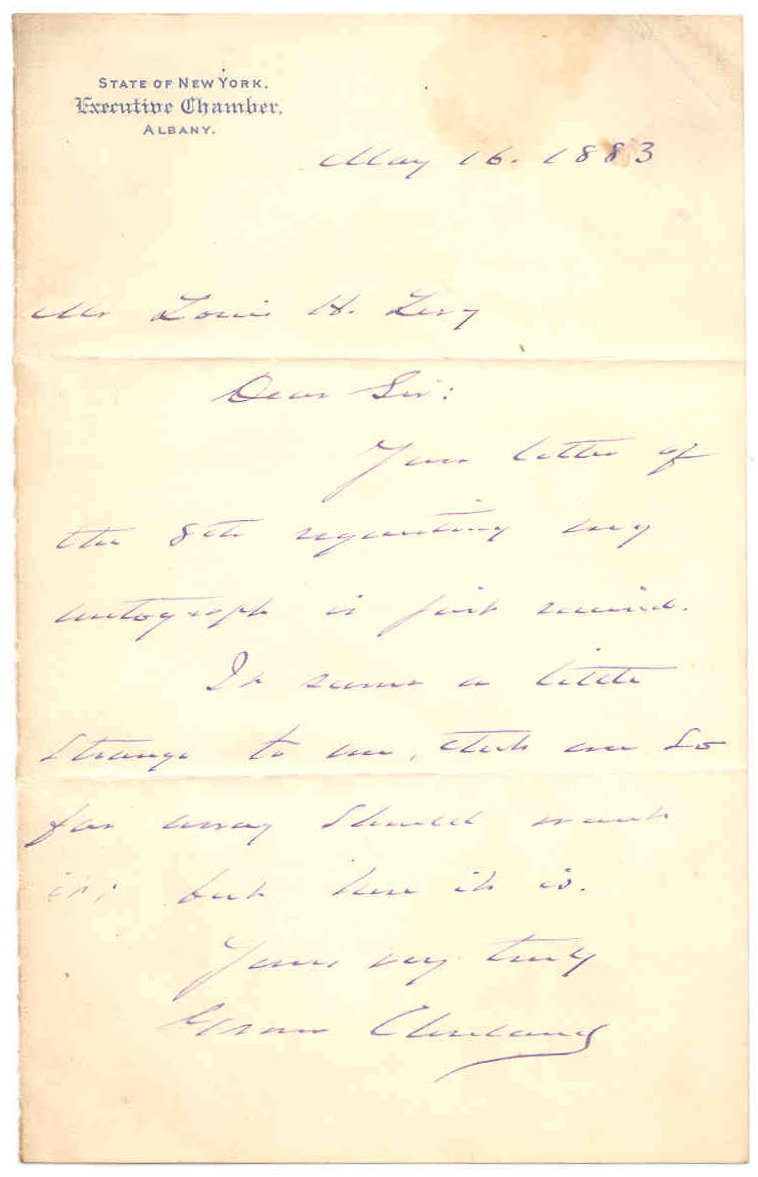 STATE OF NEW YORK.
Executive Chamber,
ALBANY.
May 16. 1883
Mr Louis H. Levy
Dear Sir:
Your letter of
the 8th requesting my
autograph is just received.
It seems a little
strange to me, that one so
far away should want
it; but here it is.
Yours very truly
Grover Cleveland